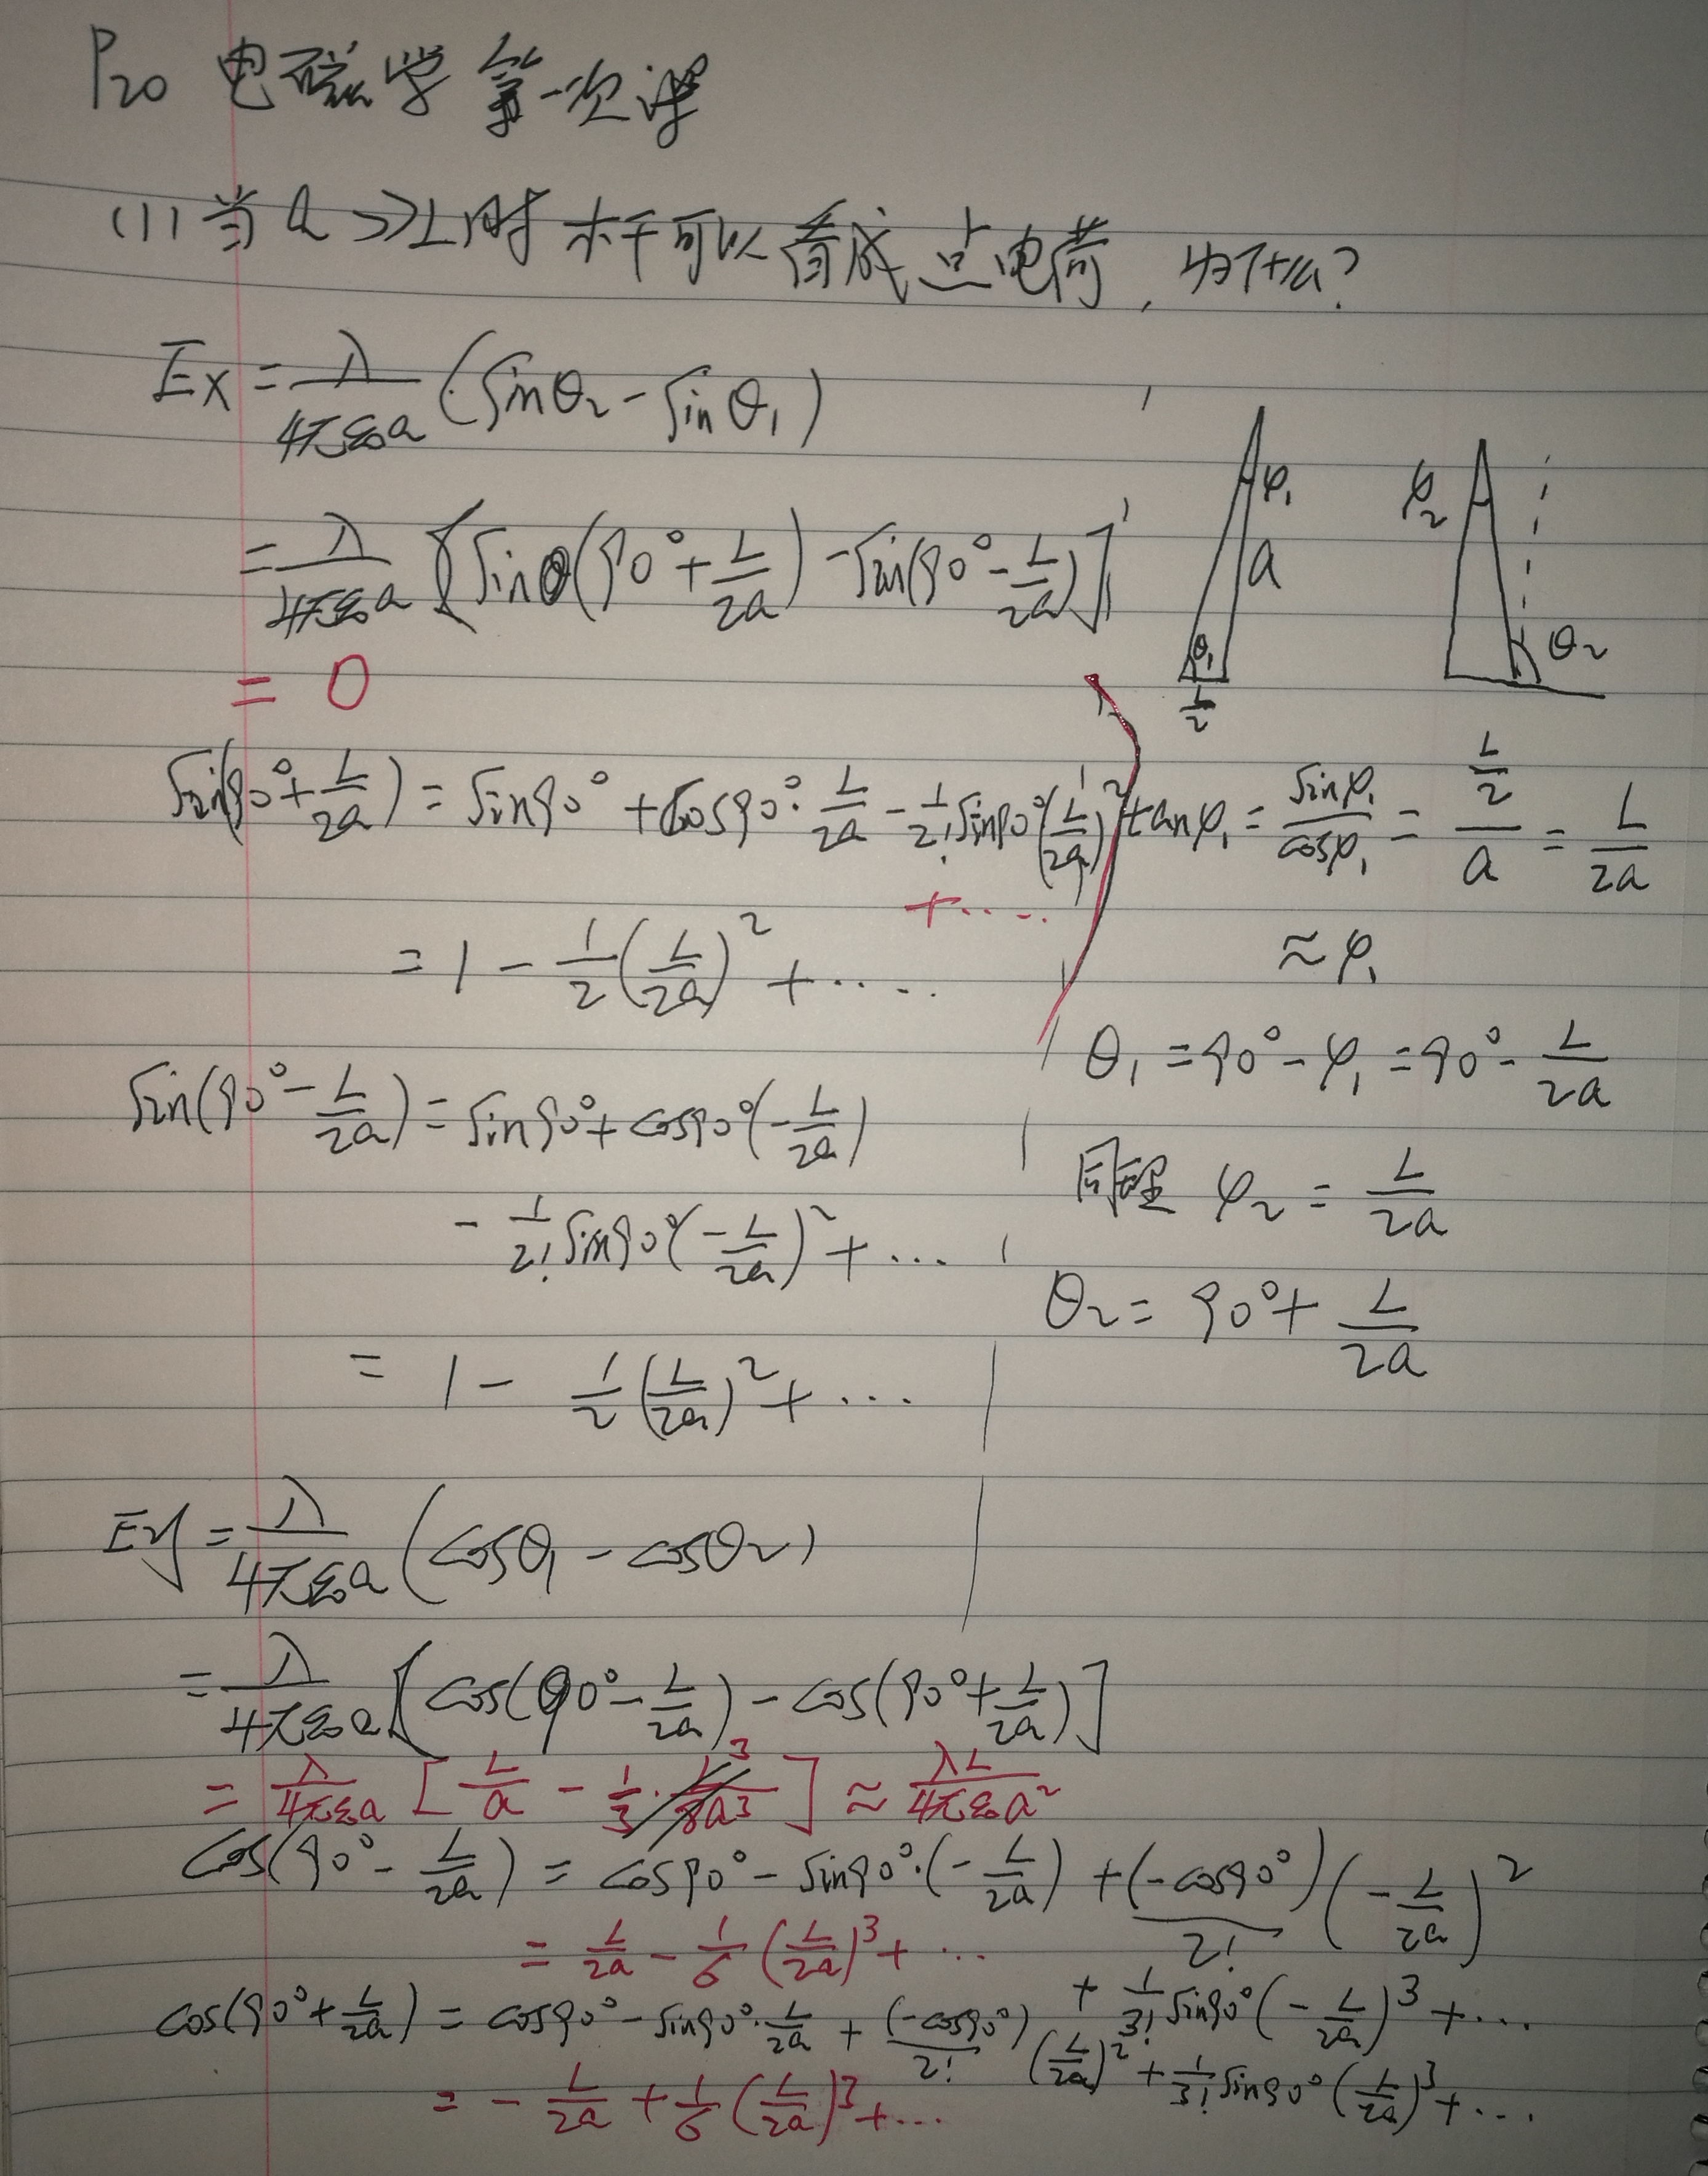 P20 电磁学第一次课
(1) 当 a >> L 时 杆可以看成点电荷, 为什么?
Ex = λ/4πε₀a (sinθ₂ - sinθ₁)
= λ/4πε₀a [sin(90° + L/2a) - sin(90° - L/2a)]
= 0
φ₁
a
θ₁
L/2
φ₂
θ₂
sin(90° + L/2a) = sin90° + cos90° · L/2a - 1/2! sin90° (L/2a)²
+ ·····
= 1 - 1/2 (L/2a)² + ·····
sin(90° - L/2a) = sin90° + cos90° (-L/2a)
- 1/2! sin90° (-L/2a)² + ···
= 1 - 1/2 (L/2a)² + ···
tanφ₁ = sinφ₁/cosφ₁ = (L/2)/a = L/2a
≈ φ₁
θ₁ = 90° - φ₁ = 90° - L/2a
同理 φ₂ = L/2a
θ₂ = 90° + L/2a
Ey = λ/4πε₀a (cosθ₁ - cosθ₂)
= λ/4πε₀a [cos(90° - L/2a) - cos(90° + L/2a)]
= λ/4πε₀a [L/a - 1/3 · L³/8a³] ≈ λL/4πε₀a²
cos(90° - L/2a) = cos90° - sin90° · (-L/2a) + (-cos90°)/2! (-L/2a)²
+ 1/3! sin90° (-L/2a)³ + ···
= L/2a - 1/6 (L/2a)³ + ···
cos(90° + L/2a) = cos90° - sin90° · L/2a + (-cos90°)/2! (L/2a)² + 1/3! sin90° (L/2a)³ + ···
= - L/2a + 1/6 (L/2a)³ + ···